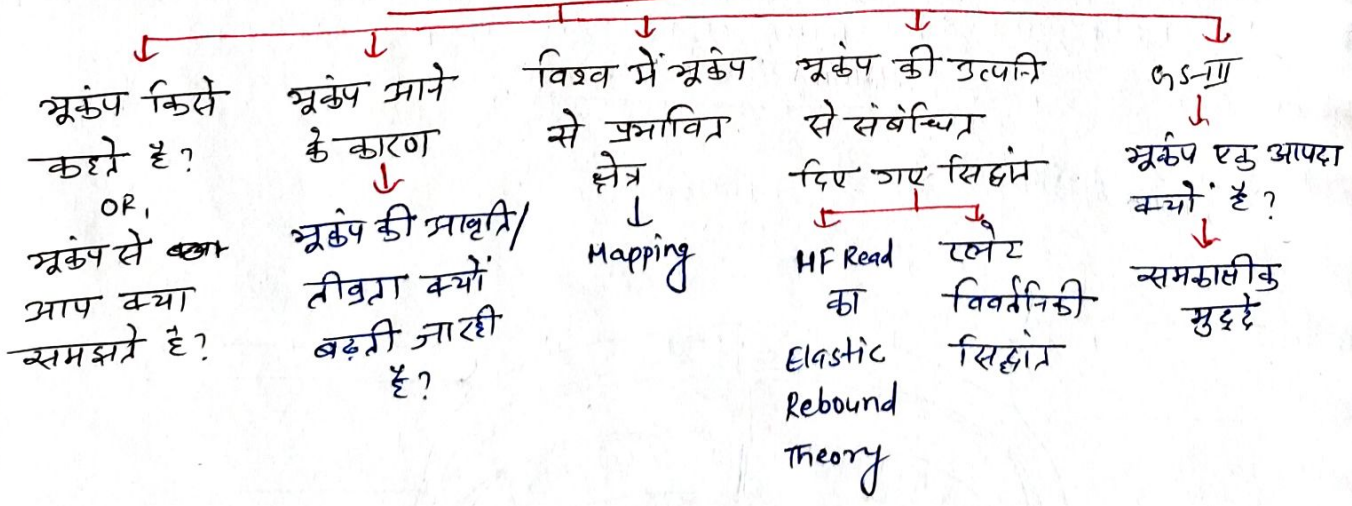 भूकंप किसे
कहते है?
OR,
भूकंप से
आप क्या
समझते है?
भूकंप आने
के कारण
भूकंप की आवृति/
तीव्रता क्यों
बढ़ती जा रही
है?
विश्व में भूकंप
से प्रभावित
क्षेत्र
Mapping
भूकंप की उत्पत्ति
से संबंधित
दिए गए सिद्धांत
HF Read
का
Elastic
Rebound
Theory
प्लेट
विवर्तनिकी
सिद्धांत
GS-III
भूकंप एक आपदा
क्यों है?
समकालीक
मुद्दे